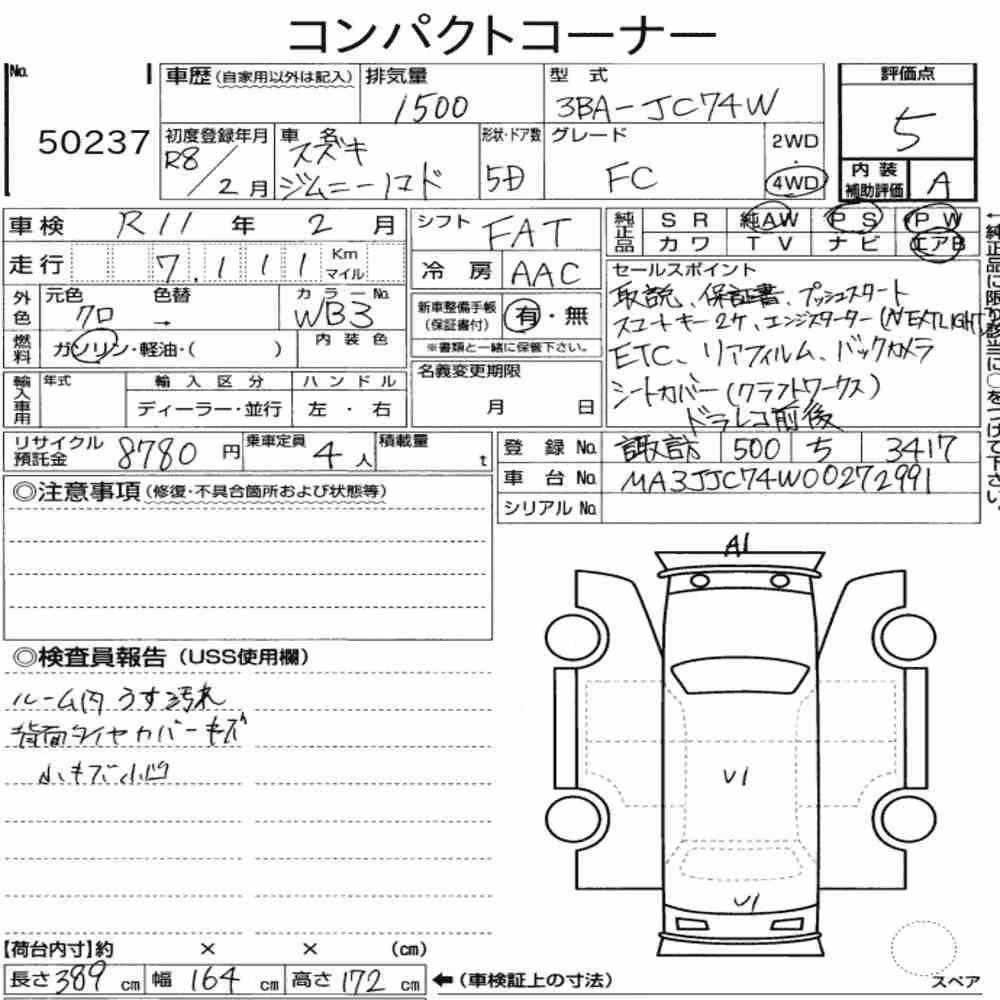 コンパクトコーナー
No. 50237
車歴(自家用以外は記入)
排気量 1500
型式 3BA-JC74W
評価点 5
初度登録年月 R8/2月
車名 スズキ
ジムニーノマド
形状・ドア数 5D
グレード FC
2WD
・
4WD
内装
補助評価 A
車検 R11年 2月
シフト FAT
純正品 SR 純AW PS PW
カワ TV ナビ エアB
走行 7,111 Km
マイル
冷房 AAC
外色 元色 クロ 色替 →
カラーNo. WB3
新車整備手帳
(保証書付) 有・無
※書類と一緒に保管下さい。
セールスポイント
取説、保証書、プッシュスタート
スマートキー2ケ、エンジンスターター(NEXTLIGHT)
ETC、リアフィルム、バックカメラ
シートカバー(クラフトワークス)
ドラレコ前後
燃料 ガソリン・軽油・( )
内装色
名義変更期限
月 日
輸入車用 年式 輸入区分 ハンドル
ディーラー・並行 左・右
リサイクル
預託金 8780円
乗車定員 4人
積載量 t
登録No. 諏訪 500 ち 3417
車台No. MA3JJC74W00272991
シリアルNo.
←純正品に限り該当に○をつけて下さい。
◎注意事項(修復・不具合箇所および状態等)
◎検査員報告(USS使用欄)
ルーム内うす汚れ
背面タイヤカバーキズ
小キズ小凹
A1
U1
U1
【荷台内寸】約 × × (cm)
長さ389cm 幅164cm 高さ172cm
←(車検証上の寸法)
スペア